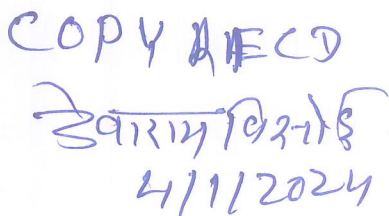 COPY RECD
देवाराम विश्नोई
4/1/2024